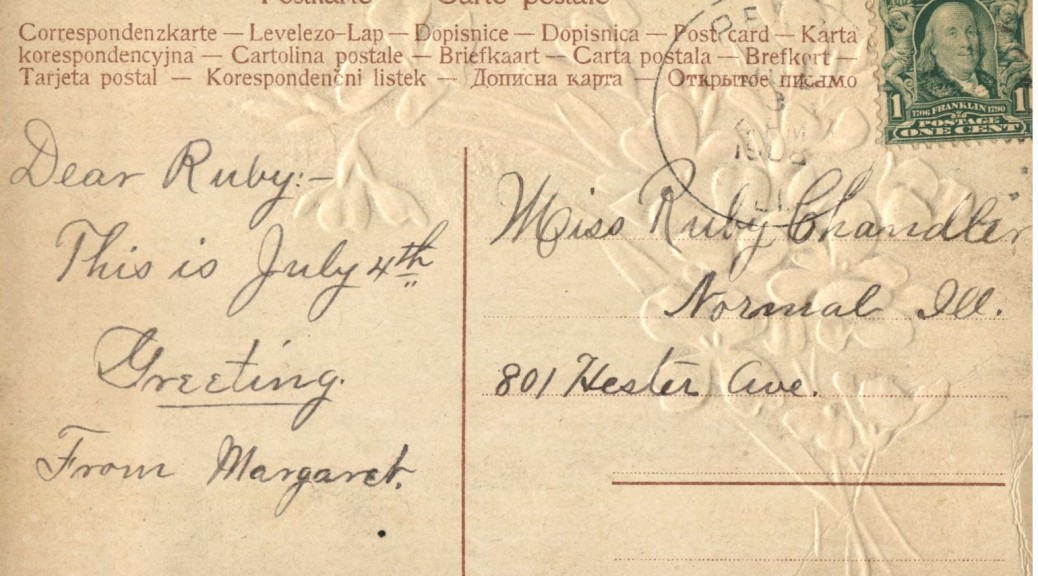 Postkarte — Carte postale
Correspondenzkarte — Levelezo-Lap — Dopisnice — Dopisnica — Post card — Karta
korespondencyjna — Cartolina postale — Briefkaart — Carta postala — Brefkort —
Tarjeta postal — Korespondenčni listek — Дописна карта — Открытое письмо
1 1706 FRANKLIN 1790 1
POSTAGE
ONE CENT
Dear Ruby:-
This is July 4th
Greeting.
From Margaret.
Miss Ruby Chandler
Normal Ill.
801 Hester Ave.